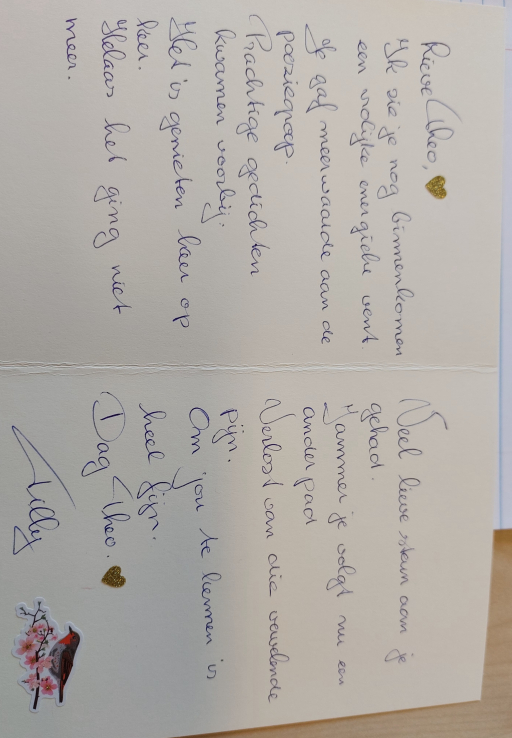 Lieve Theo,
Ik zie je nog binnenkomen
een vrolijke energieke vent.
Je gaf meerwaarde aan de
poëziegroep.
Prachtige gedichten
kwamen voorbij.
Het is genieten keer op
keer.
Helaas het ging niet
meer.
Veel lieve steun aan je
gehad.
Jammer je volgt nu een
ander pad
Verlost van die vervelende
pijn.
Om jou te kennen is
heel fijn.
Dag Theo.
Tilly